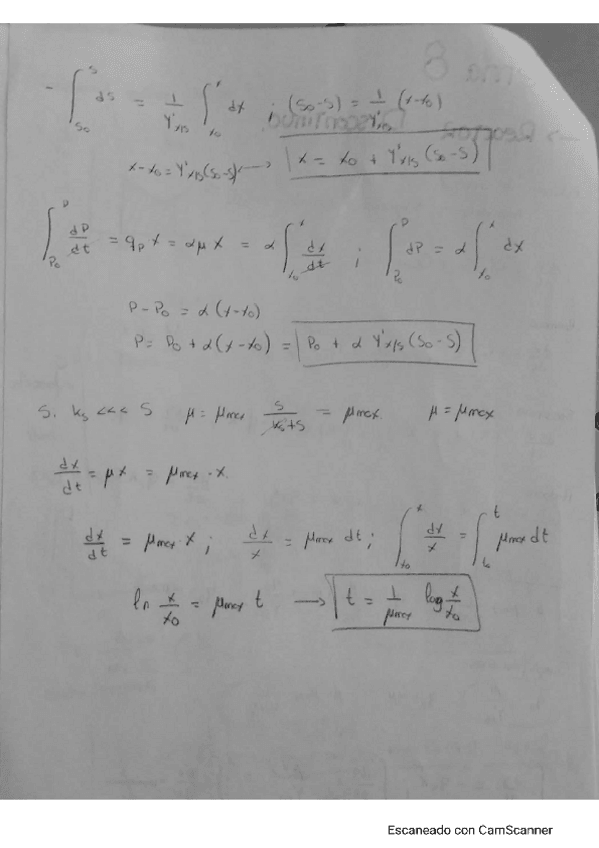 - ∫_{S0}^{S} dS = 1/Y'x/s ∫_{x0}^{x} dx ; (S0-S) = 1/Y'x/s (x-x0)
x-x0 = Y'x/s (S0-S) → x = x0 + Y'x/s (S0-S)
∫_{P0}^{P} dP/dt = qp x = αμ x = α ∫_{x0}^{x} dx/dt ; ∫_{P0}^{P} dP = α ∫_{x0}^{x} dx
P-P0 = α (x-x0)
P = P0 + α (x-x0) = P0 + α Y'x/s (S0-S)
S. ks <<< S μ = μmax S/(ks+S) = μmax. μ = μmax
dx/dt = μx = μmax · x.
dx/dt = μmax · x ; dx/x = μmax dt ; ∫_{x0}^{x} dx/x = ∫_{t0}^{t} μmax dt
ln x/x0 = μmax t → t = 1/μmax log x/x0
Escaneado con CamScanner